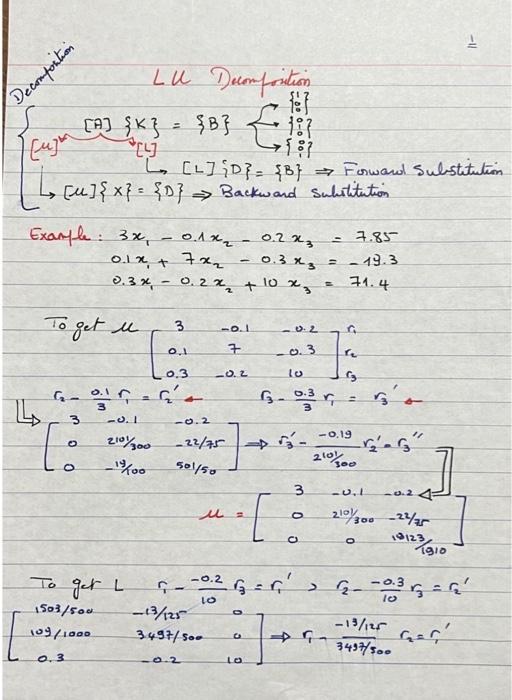 1
Decomposition
LU Decomposition
[A] {K} = {B}
{1 0 0}
{0 1 0}
{0 0 1}
[U] [L]
[L]{D} = {B} ⇒ Forward Substitution
[U]{x} = {D} ⇒ Backward Substitution
Example: 3x₁ - 0.1x₂ - 0.2x₃ = 7.85
0.1x₁ + 7x₂ - 0.3x₃ = -19.3
0.3x₁ - 0.2x₂ + 10x₃ = 71.4
To get U
3 -0.1 -0.2 r₁
0.1 7 -0.3 r₂
0.3 -0.2 10 r₃
r₂ - 0.1/3 r₁ = r₂' r₃ - 0.3/3 r₁ = r₃'
3 -0.1 -0.2
0 2101/300 -22/75 ⇒ r₃' - -0.19/(2101/300) r₂' = r₃''
0 -19/100 501/50
3 -0.1 -0.2
U = 0 2101/300 -22/75
0 0 19123/1910
To get L r₁ - -0.2/10 r₃ = r₁' , r₂ - -0.3/10 r₃ = r₂'
1503/500 -13/125 0
109/1000 3497/500 0 ⇒ r₁ - (-13/125)/(3497/500) r₂ = r₁'
0.3 -0.2 10